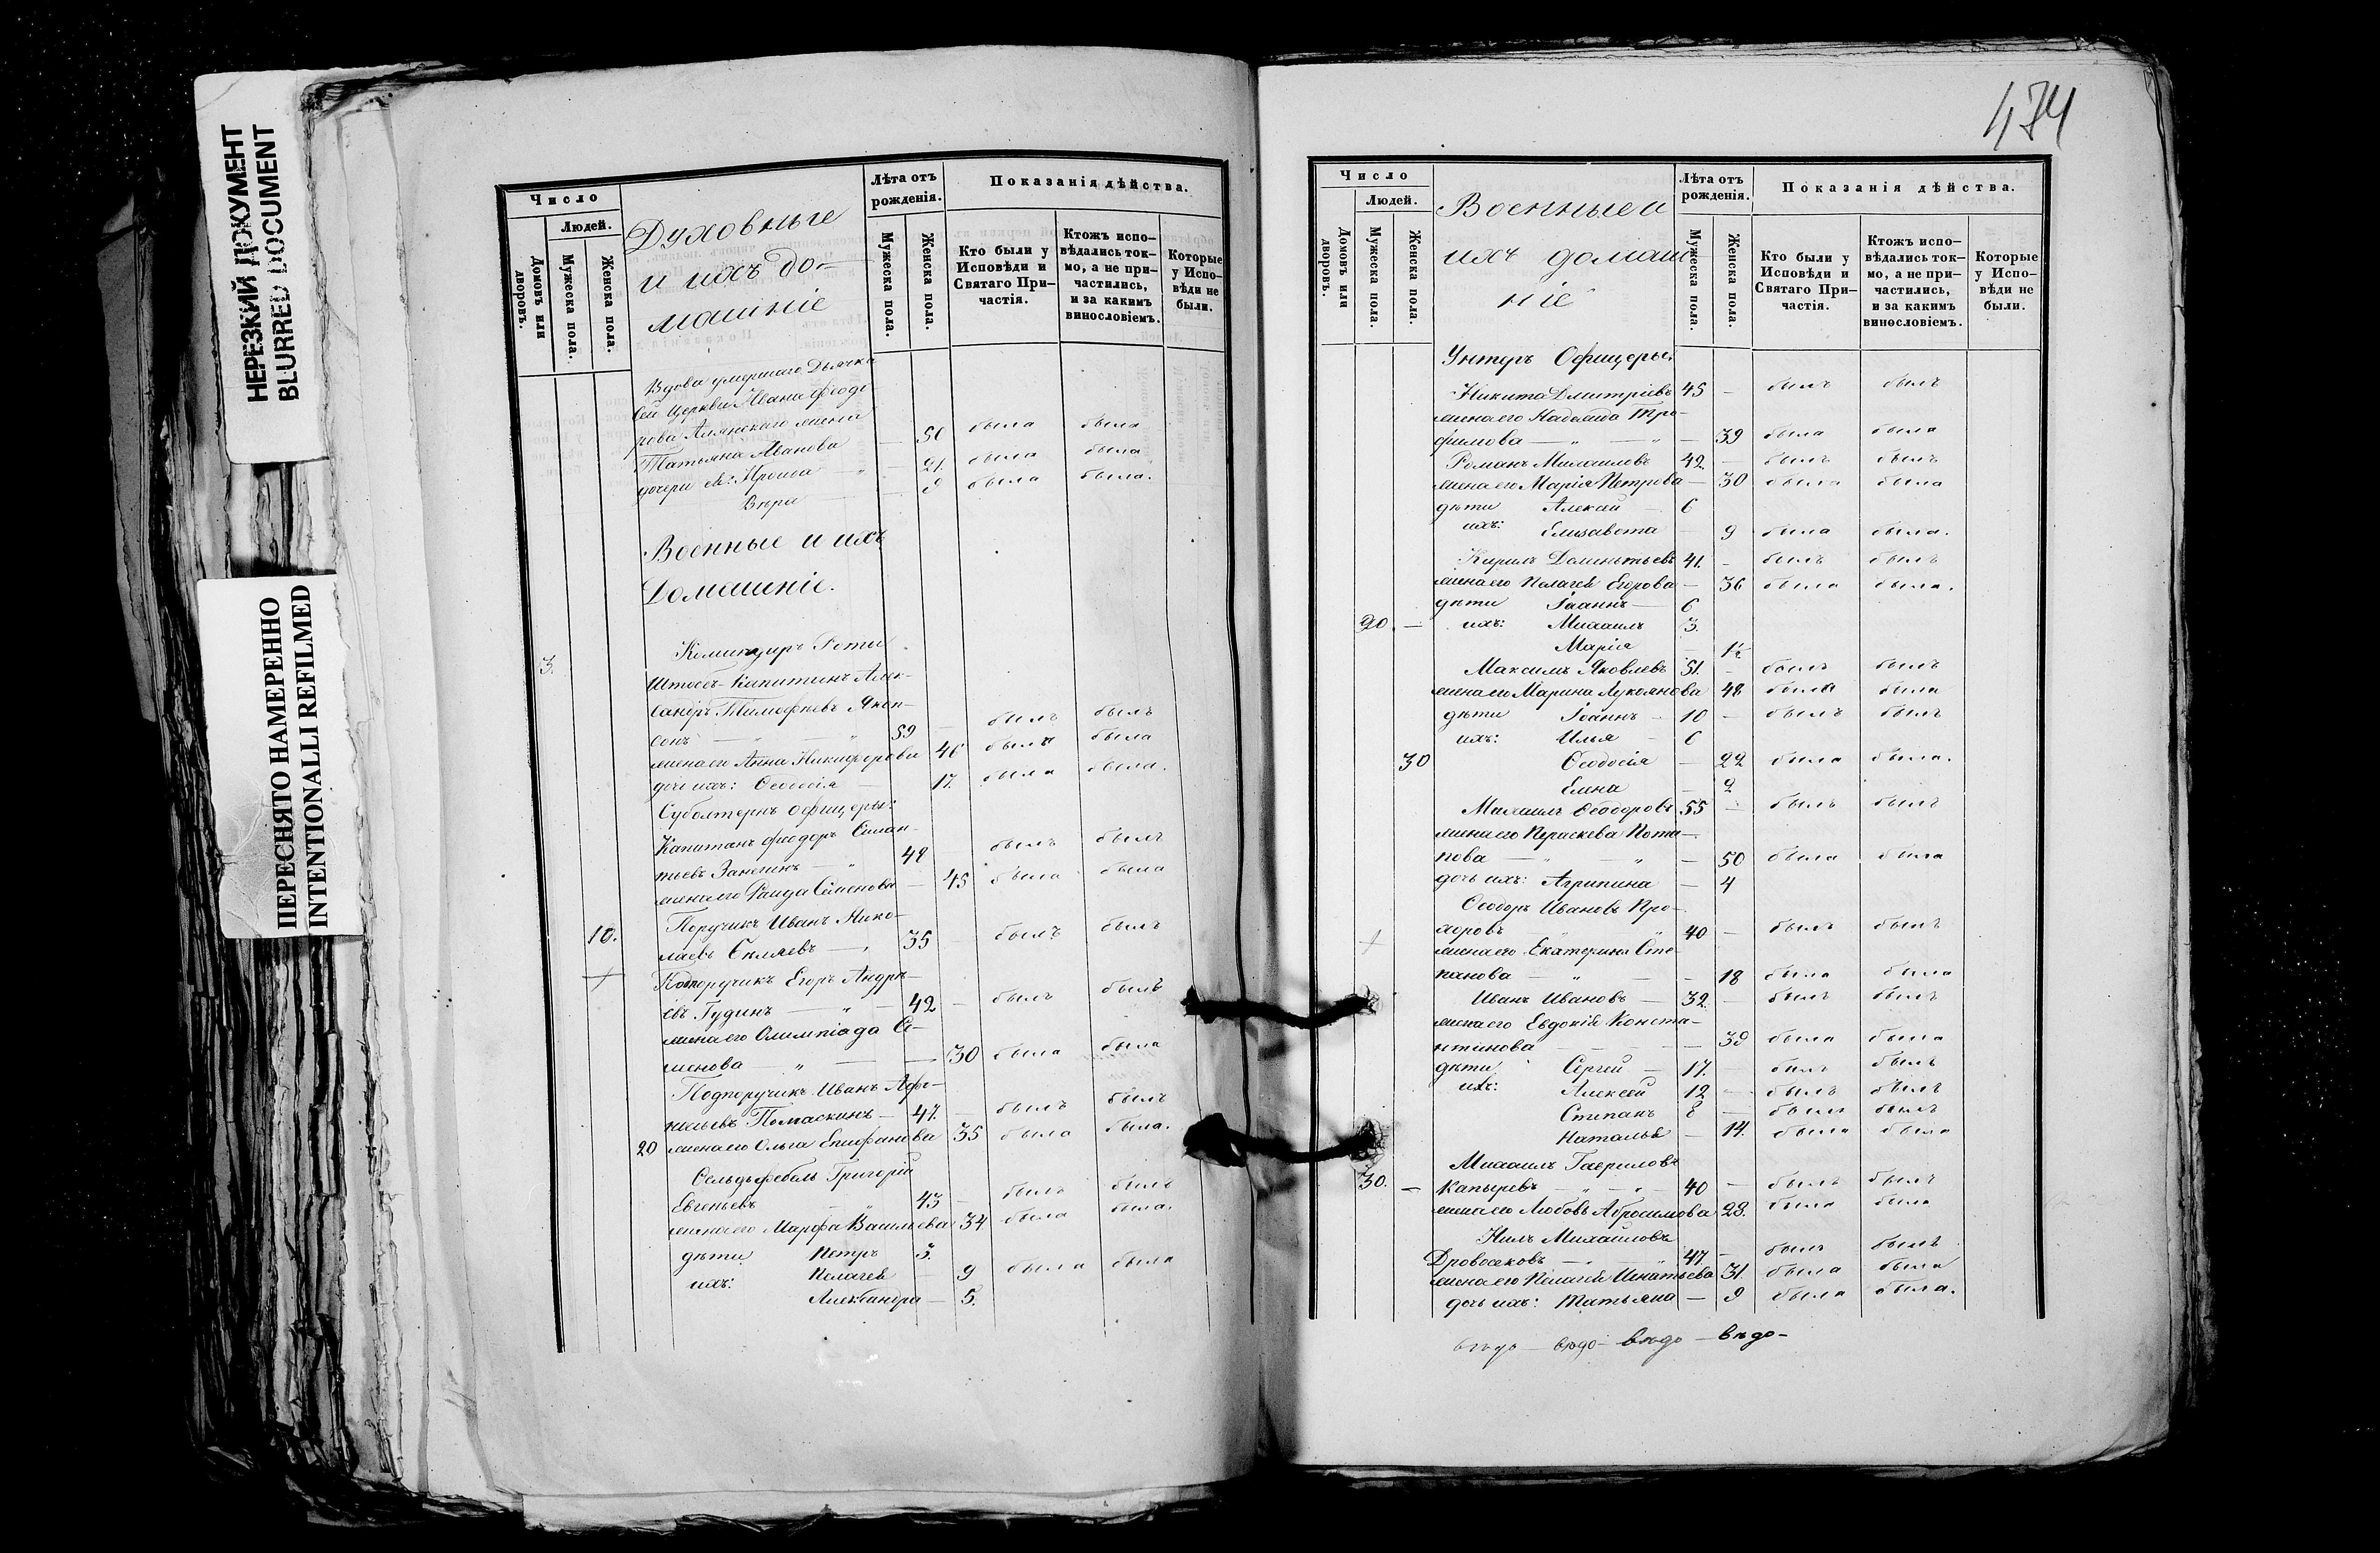 НЕРЕЗКИЙ ДОКУМЕНТ
BLURRED DOCUMENT
ПЕРЕСНЯТО НАМЕРЕННО
INTENTIONALLI REFILMED
Число
Людей.
Домовъ или дворовъ.
Мужеска пола.
Женска пола.
Духовные
и ихъ до-
машніе
Лѣта отъ
рожденія.
Мужеска пола.
Женска пола.
Показанія дѣйства.
Кто были у
Исповѣди и
Святаго При-
частія.
Ктожъ испо-
вѣдались ток-
мо, а не при-
частились,
и за какимъ
винословіемъ.
Которые
у Испо-
вѣди не
были.
Вдова умершаго Дьячка
сей церкви Ивана Ѳеодо
рова жена
Татьяна Иванова — 50 была была
дочери — 21. была была
Вѣра — 9 была была.
Военные и ихъ
Домашніе.
3. Командиръ Роты
Штабсъ-Капитанъ Алек-
сандръ Тимофѣевъ Якоп-
сонъ — 59 — былъ былъ
жена его Анна Никифорова 46 была была
дочь их: Ѳеодосія — 17. была была.
Субалтернъ офицеры:
Капитанъ Фиодоръ
48 — былъ былъ
жена его Семенова — 45 была была
10. Поручикъ Иванъ Нико-
лаевъ — 35 — былъ былъ
Подпоручикъ Егоръ Андрѣ-
евъ Гудинъ — " — 42 — былъ былъ
жена его Олимпіада Се-
менова " — — 30 была была
Подпоручикъ Иванъ Афо-
насьевъ Помаскинъ — 47. — былъ былъ
20 жена его Ольга Епифанова 35 была была.
Фельдфебель Григорій
Евгеньевъ 43 — былъ былъ
жена его Марфа Васильева 34 была была.
дѣти Петръ 3.
ихъ: Пелагея — 9 была была
Александра — 5.
474
Число
Людей.
Домовъ или дворовъ.
Мужеска пола.
Женска пола.
Военные и
ихъ домаш
ніе
Лѣта отъ
рожденія.
Мужеска пола.
Женска пола.
Показанія дѣйства.
Кто были у
Исповѣди и
Святаго При-
частія.
Ктожъ испо-
вѣдались ток-
мо, а не при-
частились,
и за какимъ
винословіемъ.
Которые
у Испо-
вѣди не
были.
Унтеръ Офицеры:
Никита Дмитріевъ 45 — былъ былъ
жена его Надежда Тро-
фимова — " — " — 39 была была
Романъ Михаиловъ 42 — былъ былъ
жена его Марія Петрова — 30 была была
дѣти Алексей — 6
ихъ: Елисавета — 9 была была.
Кирилъ Дементьевъ 41. — былъ былъ
жена его Пелагея Егорова — 36 была была.
дѣти Іоаннъ — 6
20. — ихъ: Михаилъ 3.
Марія — 1½
Максимъ Яковлевъ 51. — былъ былъ
жена его Марина Лукоянова 48 была была
дѣти Іоаннъ — 10 — былъ былъ
ихъ: Илья — 6
30 Ѳеодосія — 22 была была.
Елена — 2
Михаилъ Ѳеодоровъ 55 — былъ былъ
жена его Параскева Пота-
пова — " " — 50 была была
дочь ихъ: Агрипина — 4
Ѳеодоръ Ивановъ Про-
" 40 — былъ былъ
жена его Екатерина Сте-
панова — " — 18 была была
Иванъ Ивановъ — 32. — былъ былъ
жена его Евдокія Конста-
нтинова — 39 была была
дѣти Сергей — 17. былъ былъ
ихъ: Алексей 12 — былъ былъ
Степанъ 8 — былъ былъ
Наталья — 14. была была
Михаилъ Гавриловъ
30. — Капыревъ — " — " — 40 — былъ былъ
жена его Любовь Абросимова 28. была была
Нилъ Михаиловъ
Дровосековъ — " 47 — былъ былъ
жена его Пелагея Игнатьева 31. была была
дочь ихъ: Татьяна — 9 была была.
вѣдо — вѣдо — вѣдо — вѣдо —